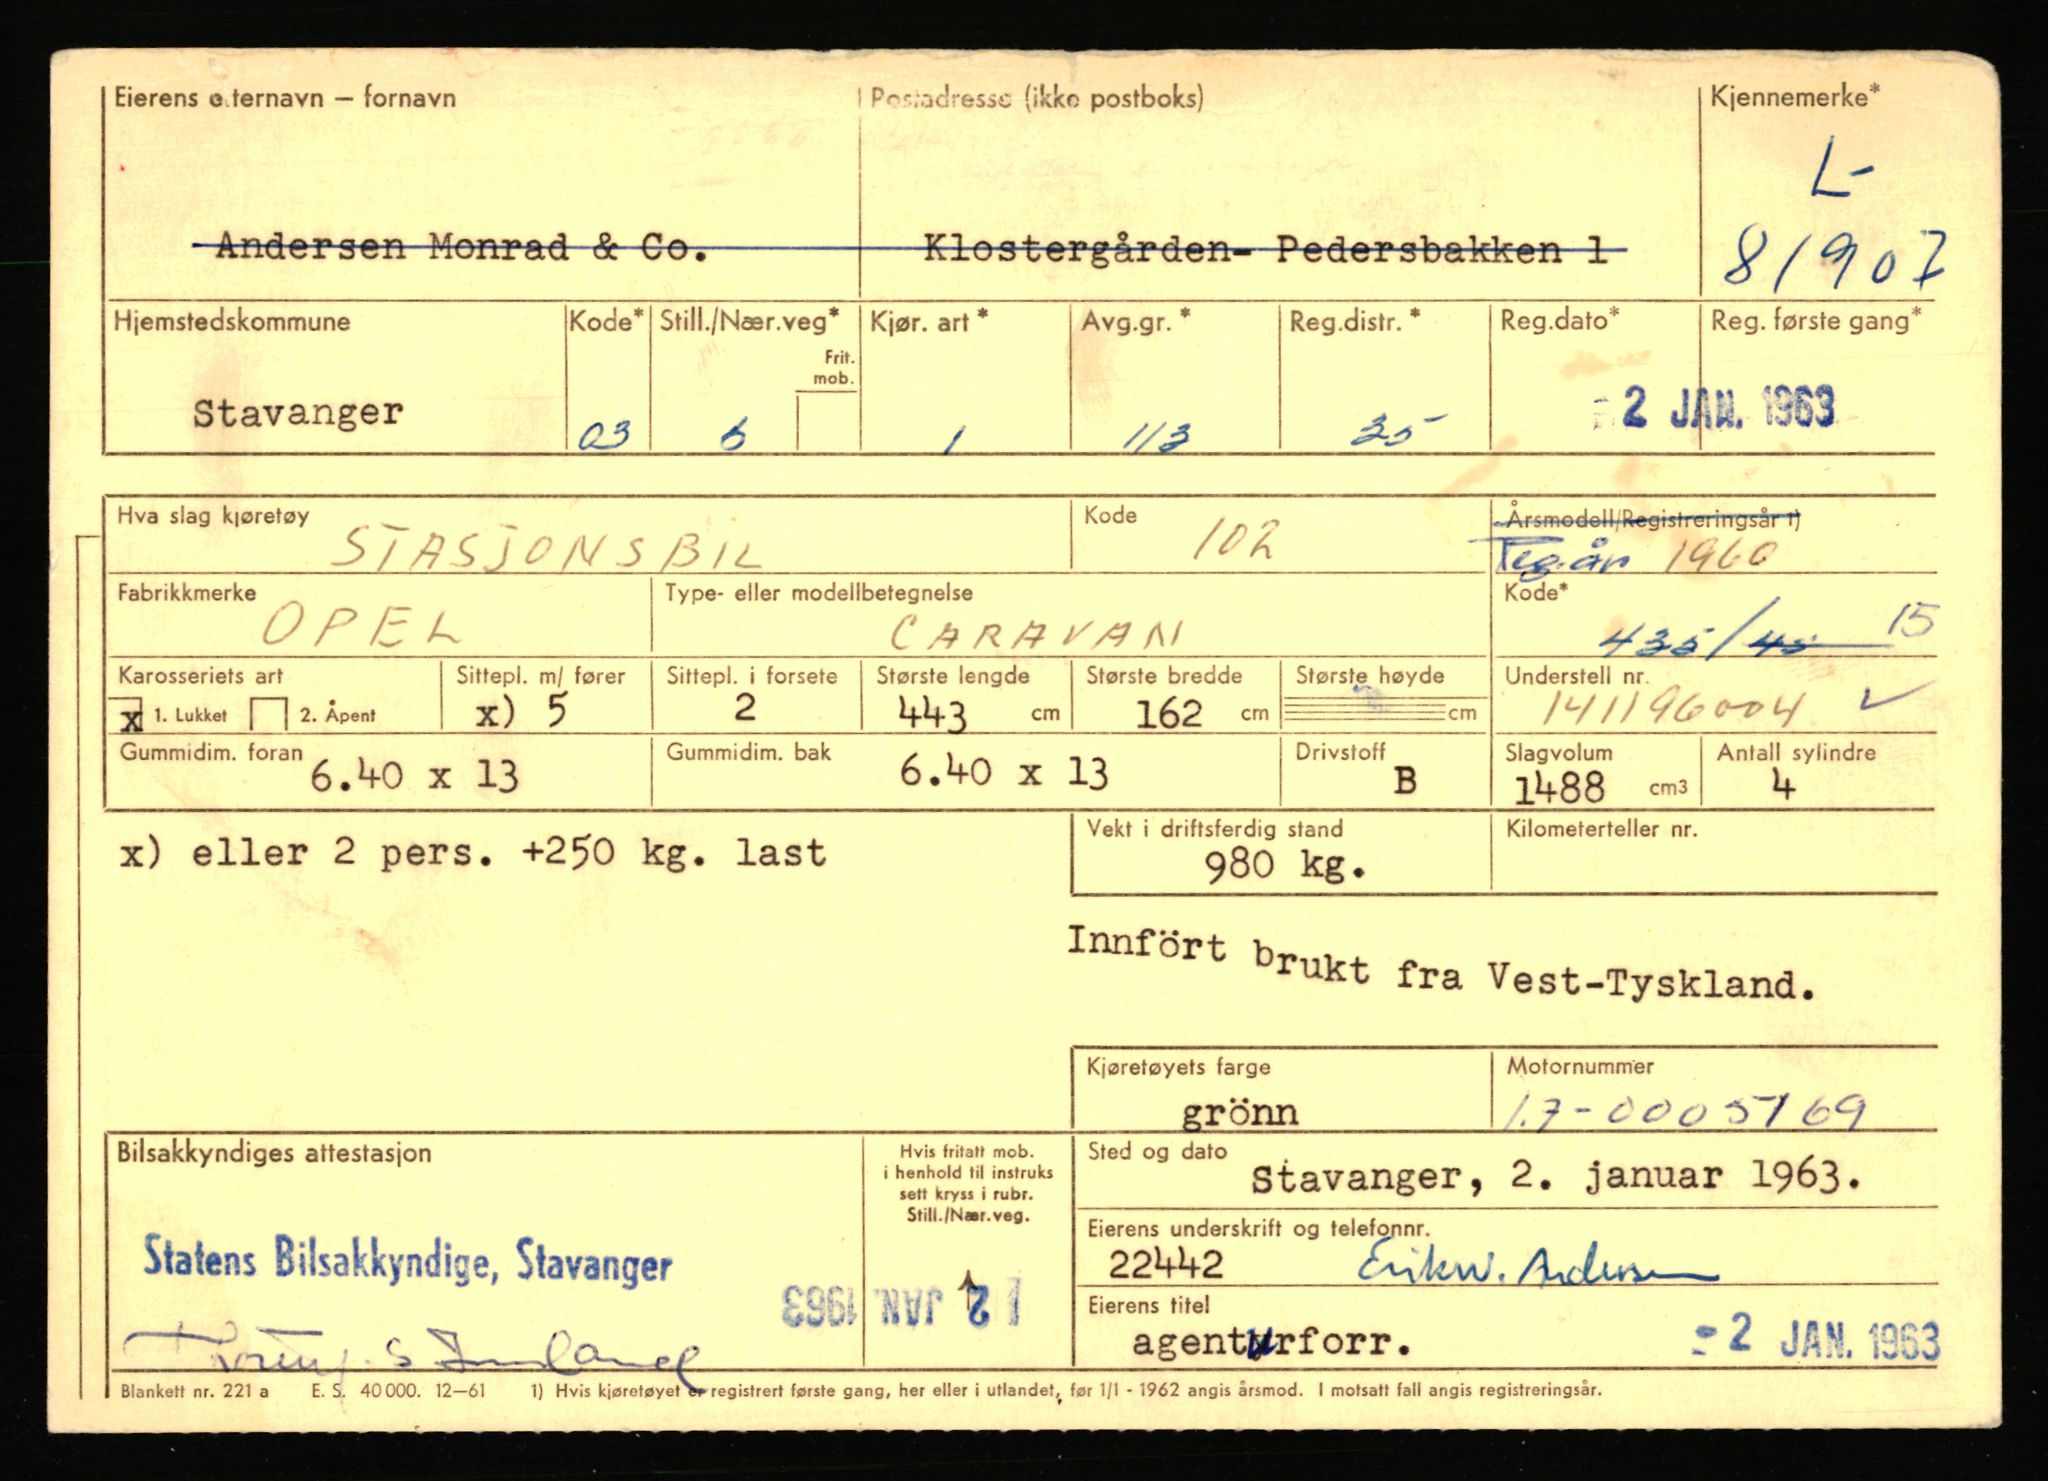 Eierens etternavn – fornavn
Postadresse (ikke postboks)
Kjennemerke*
L-
Andersen Monrad & Co.
Klostergården- Pedersbakken 1
81907
Hjemstedskommune
Kode*
Still./Nær.veg*
Kjør. art *
Avg.gr. *
Reg.distr. *
Reg.dato*
Reg. første gang*
Frit. mob.
Stavanger
03
5
1
113
35
- 2 JAN. 1963
Hva slag kjøretøy
STASJONSBIL
Kode
102
Årsmodell/Registreringsår 1)
Reg.år 1960
Fabrikkmerke
OPEL
Type- eller modellbetegnelse
CARAVAN
Kode*
435/45 15
Karosseriets art
Sittepl. m/ fører
Sittepl. i forsete
Største lengde
Største bredde
Største høyde
Understell nr.
x 1. Lukket
2. Åpent
x) 5
2
443 cm
162 cm
cm
141196004 ✓
Gummidim. foran
6.40 x 13
Gummidim. bak
6.40 x 13
Drivstoff
B
Slagvolum
1488 cm3
Antall sylindre
4
x) eller 2 pers. +250 kg. last
Vekt i driftsferdig stand
980 kg.
Kilometerteller nr.
Innført brukt fra Vest-Tyskland.
Kjøretøyets farge
grönn
Motornummer
1.7-0005169
Bilsakkyndiges attestasjon
Hvis fritatt mob.
i henhold til instruks
sett kryss i rubr.
Still./Nær.veg.
Sted og dato
Stavanger, 2. januar 1963.
Statens Bilsakkyndige, Stavanger
2 JAN. 1963
Eierens underskrift og telefonnr.
22442
Erik W. Andersen
Eierens titel
agenturforr.
- 2 JAN. 1963
Blankett nr. 221 a E. S. 40 000. 12–61 1) Hvis kjøretøyet er registrert første gang, her eller i utlandet, før 1/1 - 1962 angis årsmod. I motsatt fall angis registreringsår.